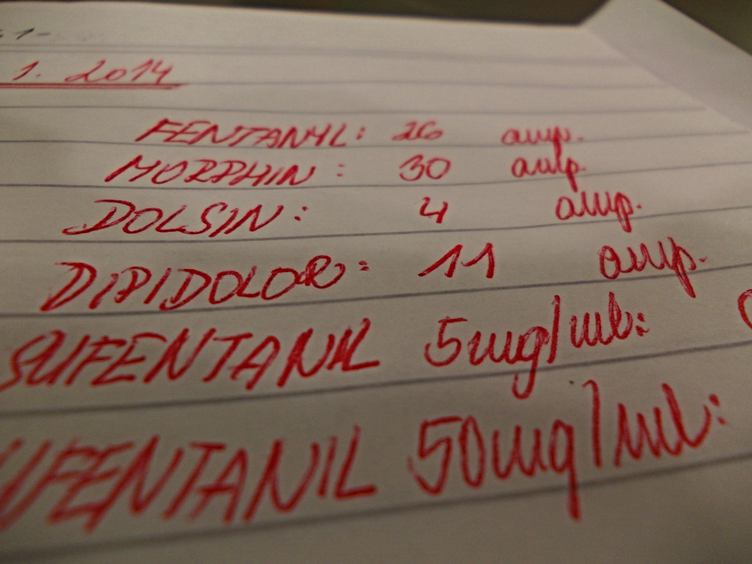 1. 2014
FENTANYL: 26 amp.
MORPHIN: 30 amp.
DOLSIN: 4 amp.
DIPIDOLOR: 11 amp.
SUFENTANIL 5mg/ml:
UFENTANIL 50mg/ml: